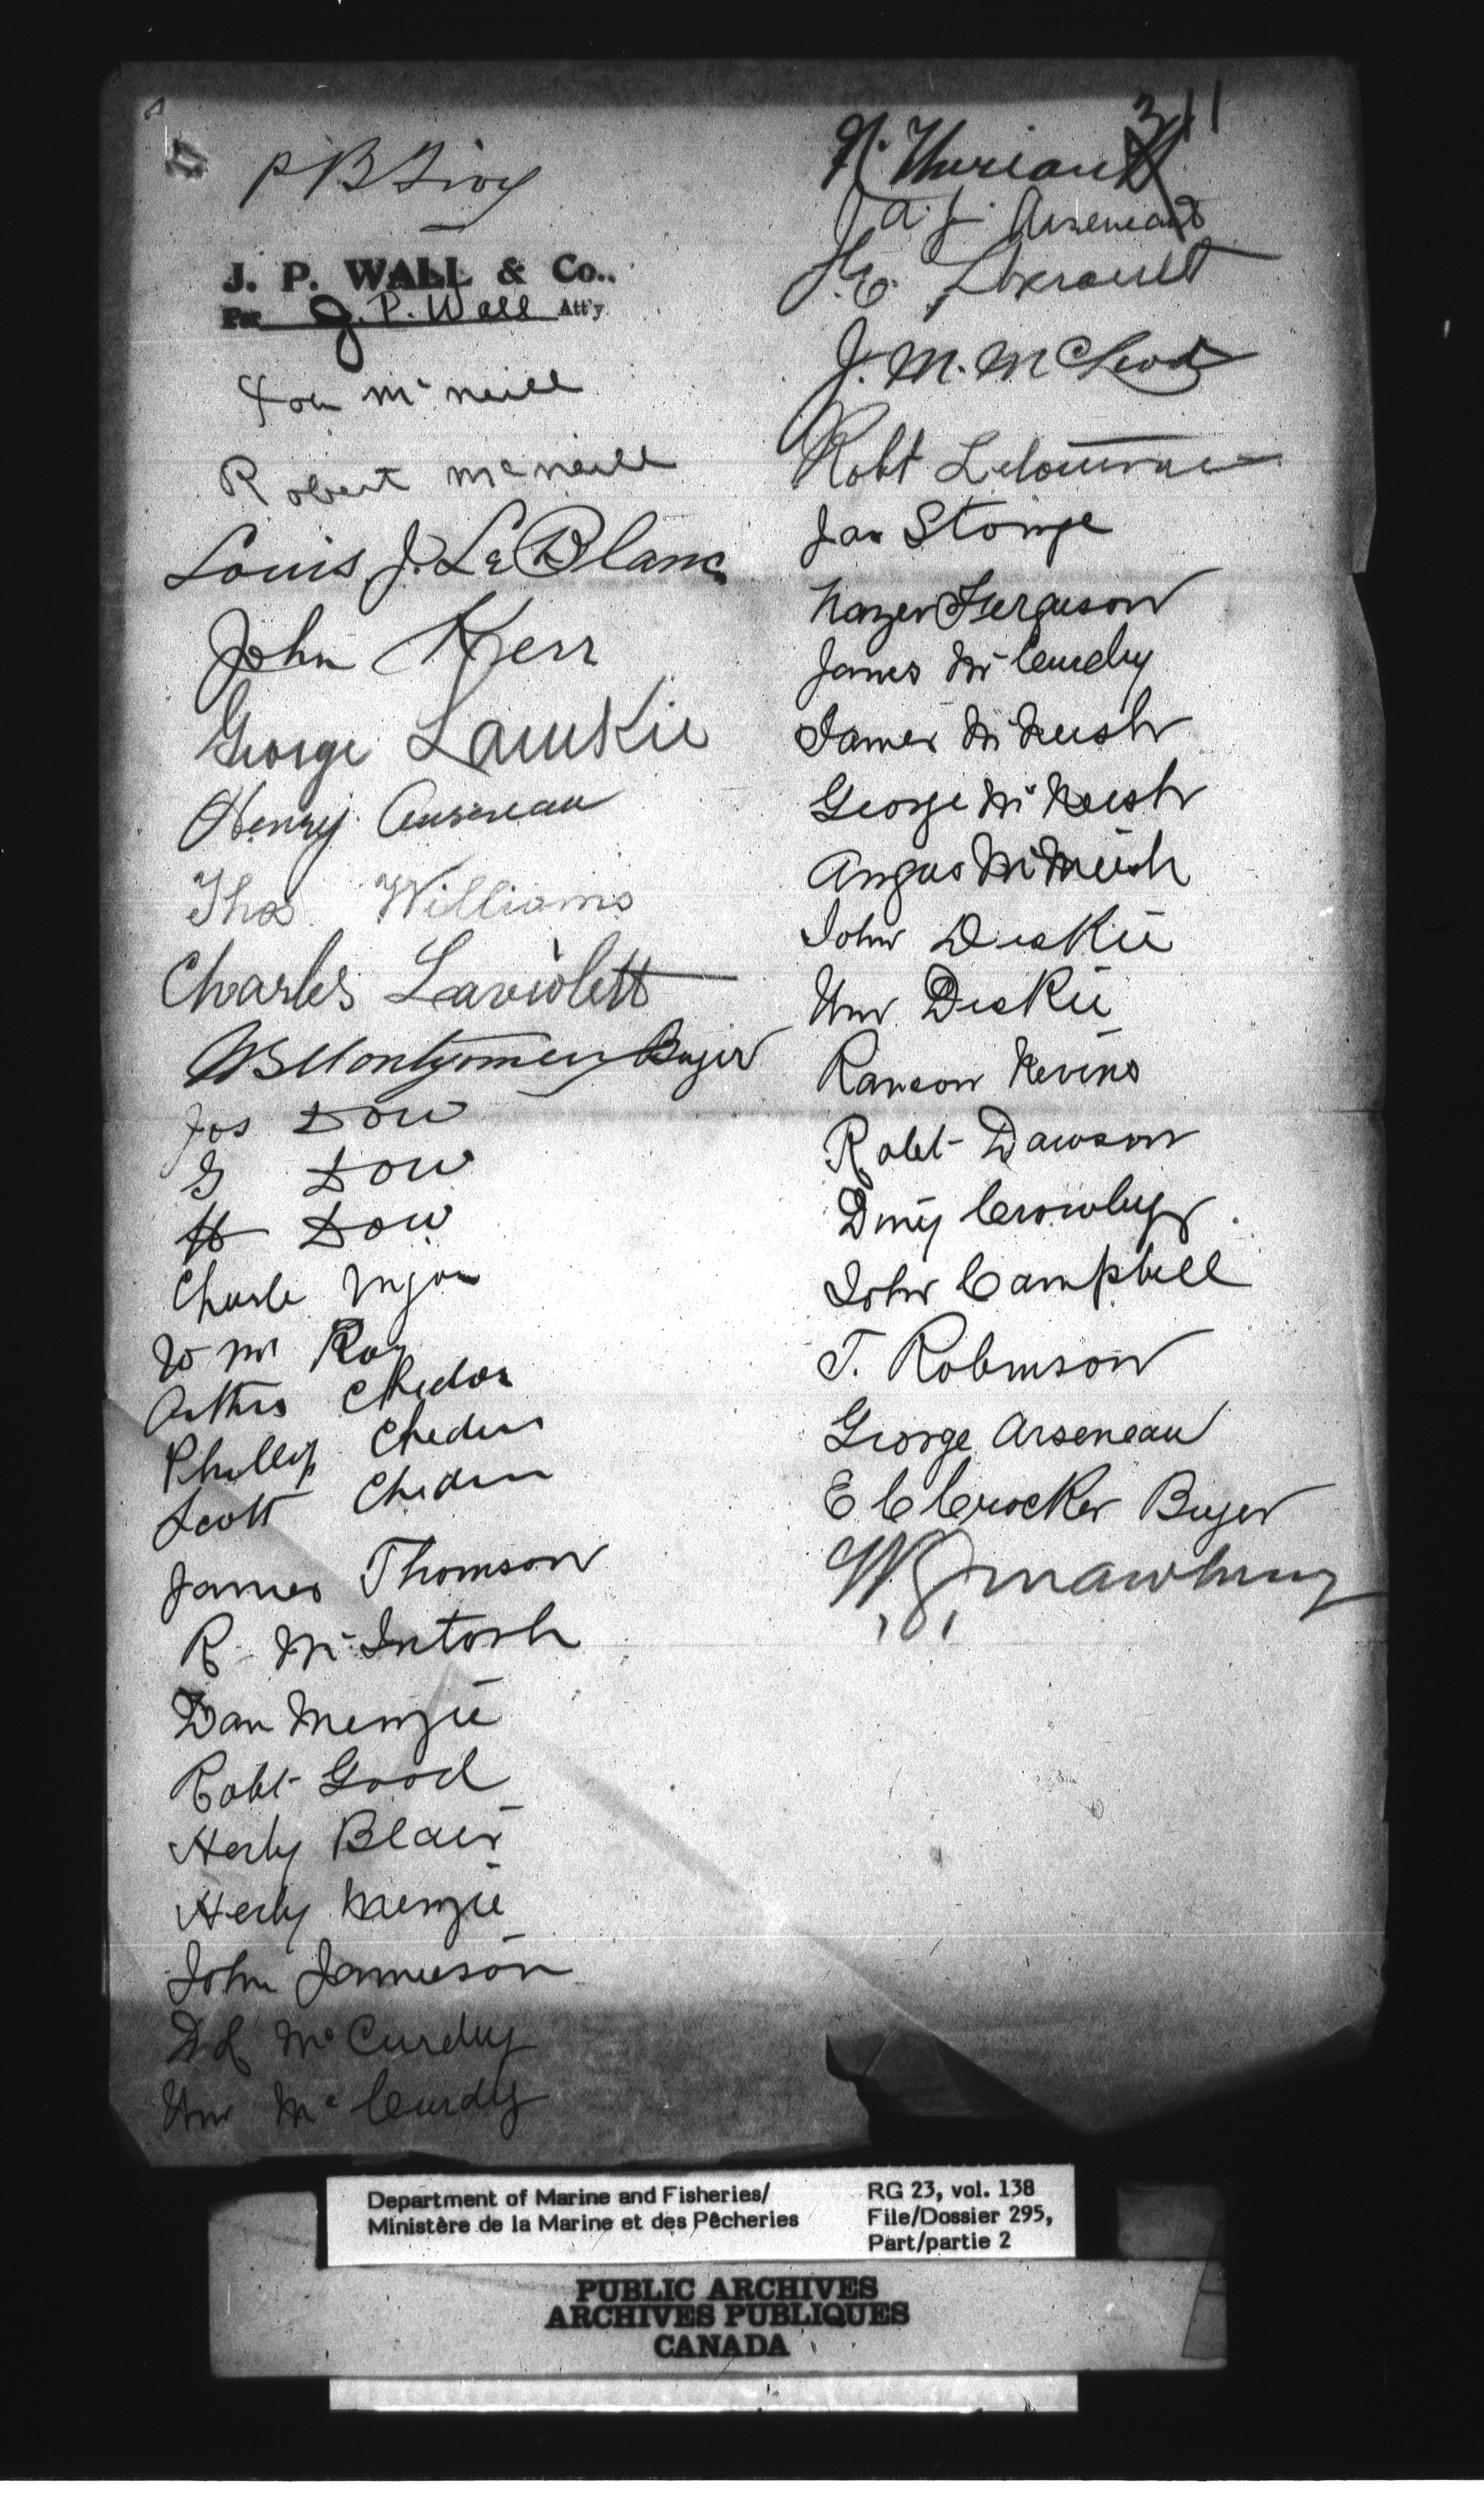 311
P B Troy
J. P. WALL & Co..
Per J. P. Wall Att'y.
Tom McNeill
Robert McNeill
Louis J. LeBlanc
John Kerr
George Lamkie
Henry Arseneau
Thos Williams
Charles Laviolett
Montgomery Buyer
Jos Dow
G Dow
H Dow
Charle
Wm Roy
Chedor
Phillip Chedor
Scott Chedor
James Thomson
R. McIntosh
Dan Menzie
Robt Good
Herby Blair
Herby Menzie
John Jamieson
D L McCurdy
Wm McCurdy
N. Theriault
J. A. J. Arseneault
J. E.
J. M. McLeod
Robt Letourneau
Jas
Hazen Ferguson
James McCurdy
James McNeish
George McNeish
Angus McNeish
John Dickie
Wm Dickie
Ranson Nevins
Robt Dawson
Dmy Crowley
John Campbell
T. Robinson
George Arseneau
E C Crocker Buyer
W.
Department of Marine and Fisheries/
Ministère de la Marine et des Pêcheries
RG 23, vol. 138
File/Dossier 295,
Part/partie 2
PUBLIC ARCHIVES
ARCHIVES PUBLIQUES
CANADA